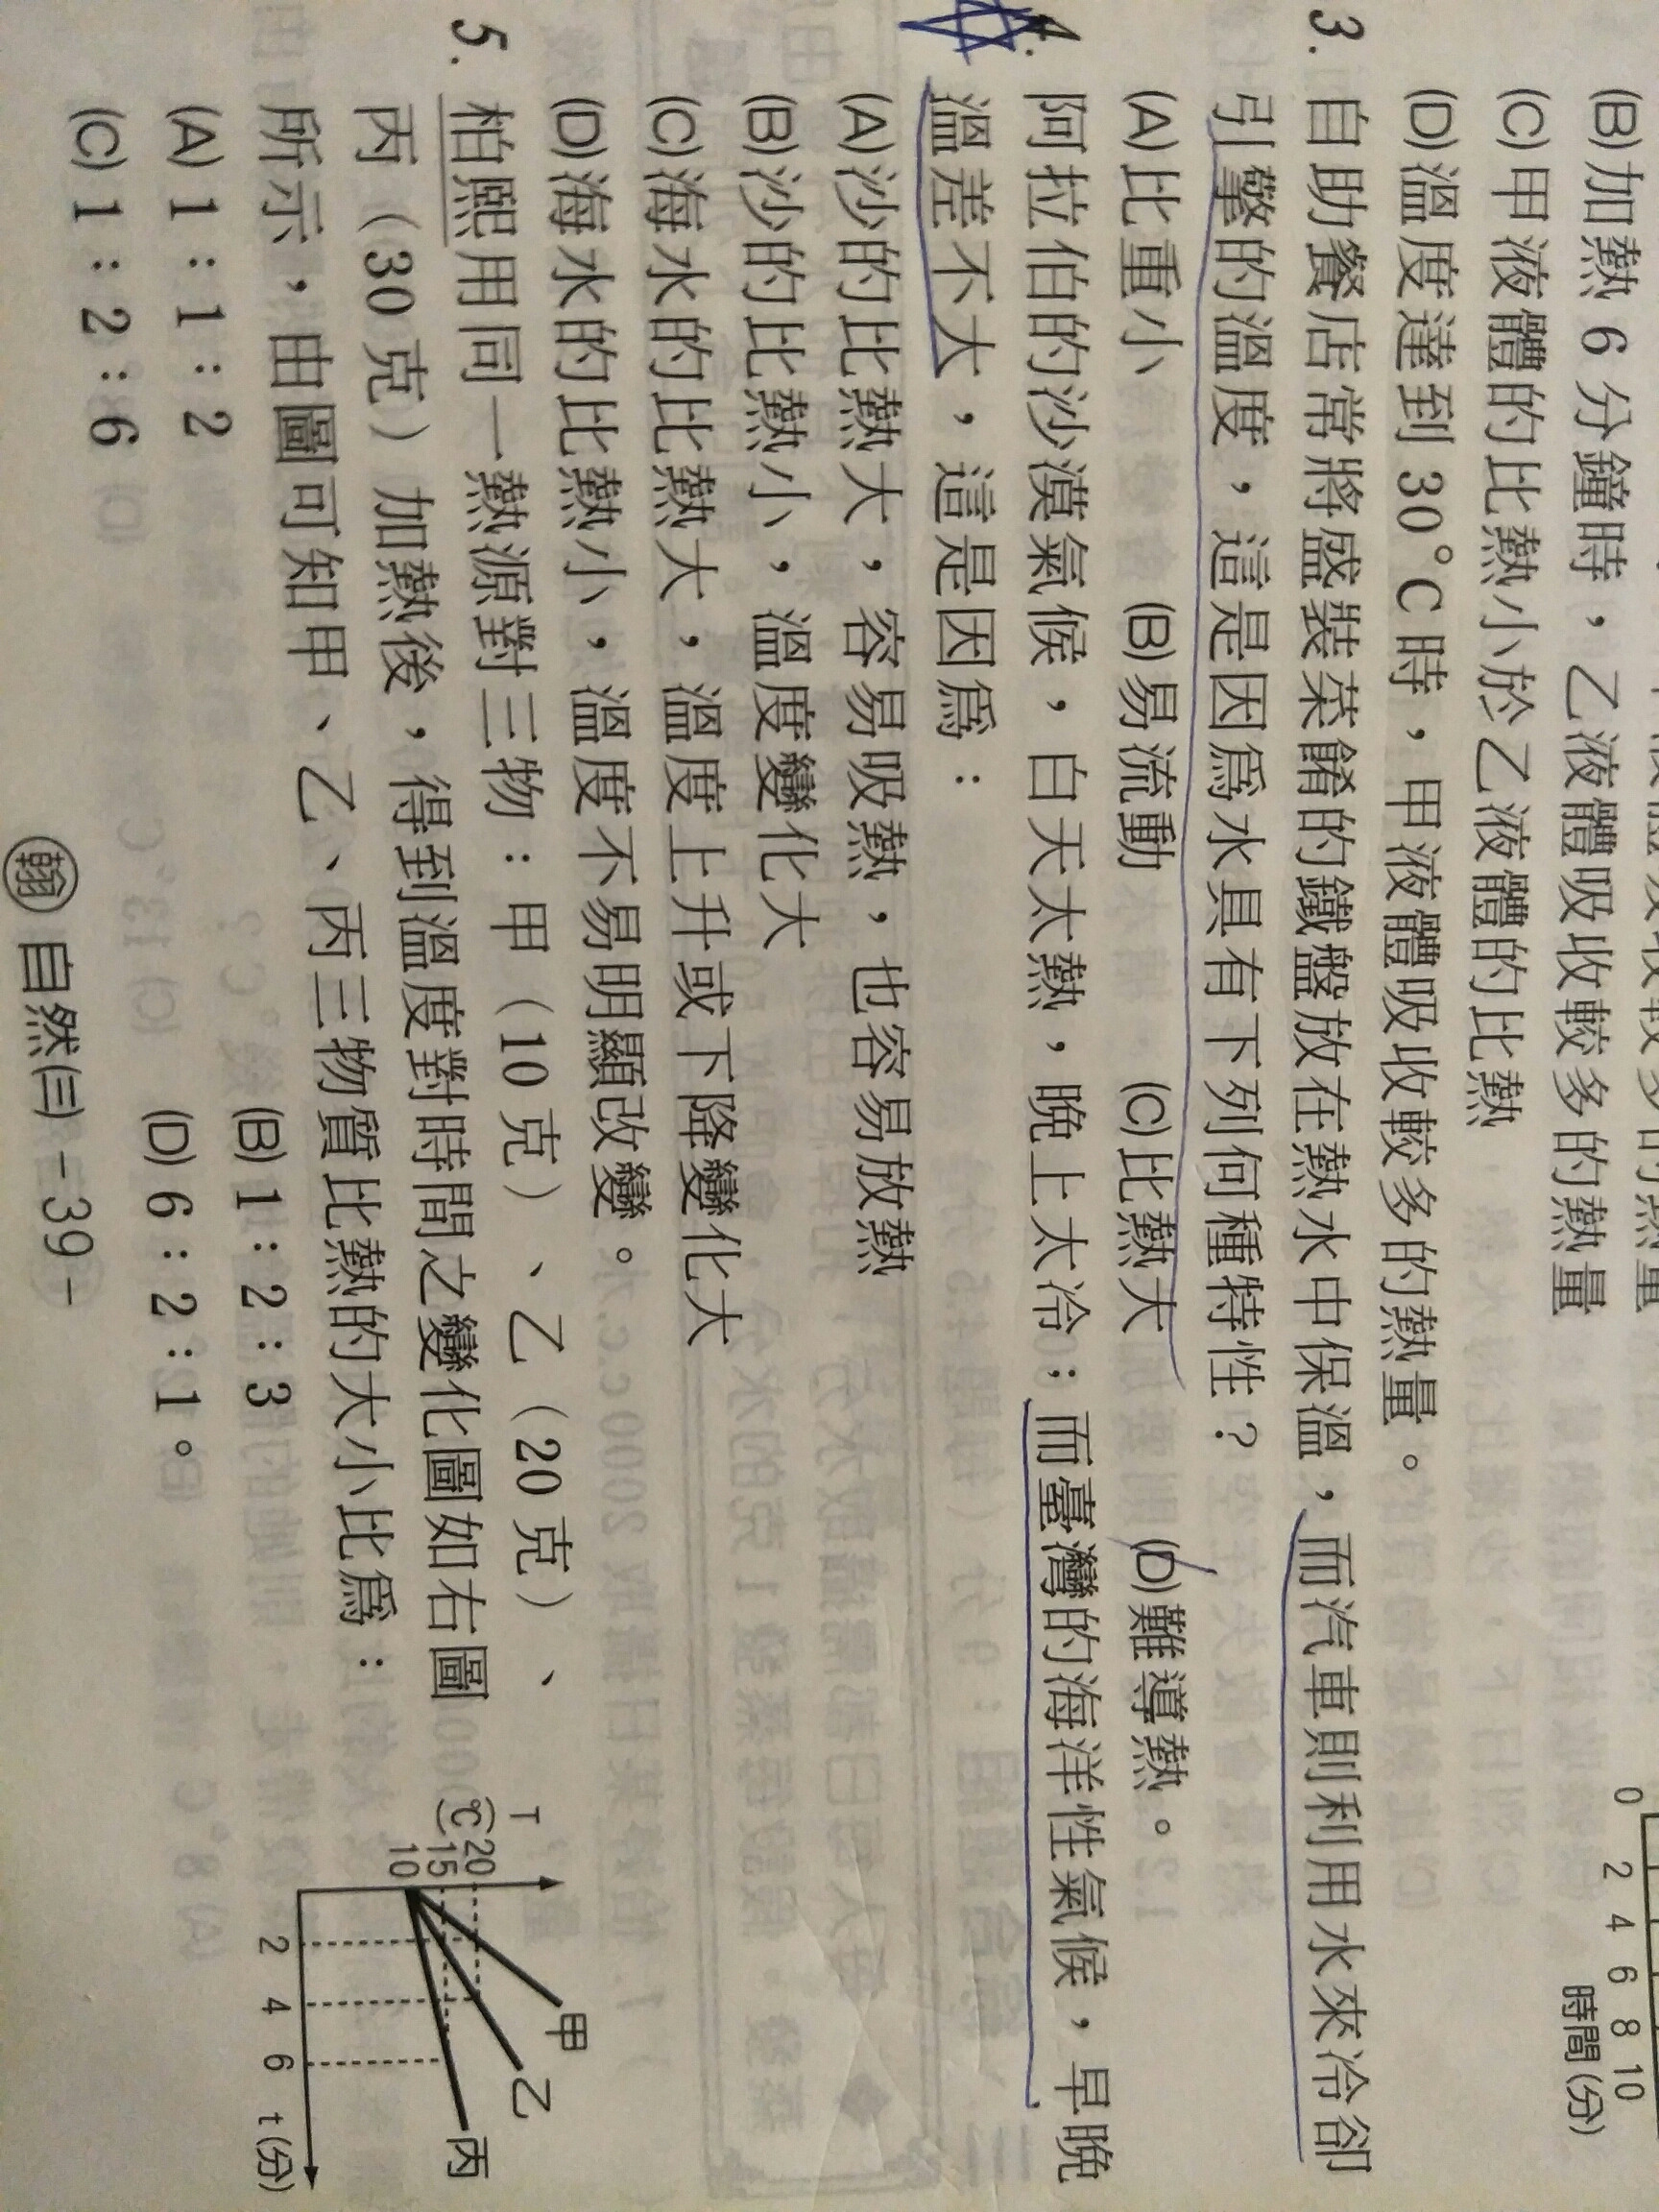 (B)加熱 6 分鐘時，乙液體吸收較多的熱量
(C)甲液體的比熱小於乙液體的比熱
(D)溫度達到 30°C 時，甲液體吸收較多的熱量。
0 2 4 6 8 10
時間(分)
3. 自助餐店常將盛裝菜餚的鐵盤放在熱水中保溫，而汽車則利用水來冷卻
引擎的溫度，這是因爲水具有下列何種特性？
(A)比重小 (B)易流動 (C)比熱大 (D)難導熱。
4. 阿拉伯的沙漠氣候，白天太熱，晚上太冷；而臺灣的海洋性氣候，早晚
溫差不大，這是因爲：
(A)沙的比熱大，容易吸熱，也容易放熱
(B)沙的比熱小，溫度變化大
(C)海水的比熱大，溫度上升或下降變化大
(D)海水的比熱小，溫度不易明顯改變。
5. 柏熙用同一熱源對三物：甲（10 克）、乙（20 克）、
丙（30 克）加熱後，得到溫度對時間之變化圖如右圖
所示，由圖可知甲、乙、丙三物質比熱的大小比爲：
(A) 1：1：2 (B) 1：2：3
(C) 1：2：6 (D) 6：2：1。
T
(℃)
20
15
10
甲
乙
丙
2 4 6 t(分)
翰 自然(三) －39－